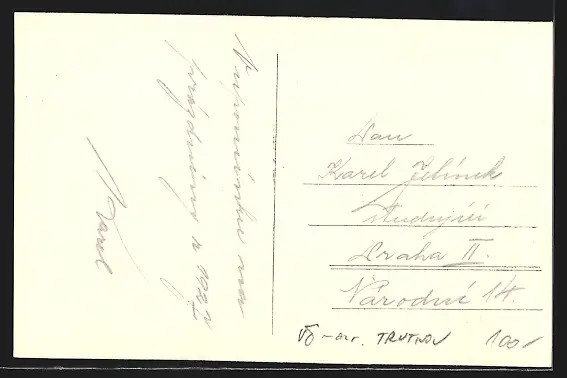 V upomínku na
prázdniny r. 1927
Karel
Pan
Karel Jelínek
studující
Praha II.
Národní 14.
VČ - okr. TRUTNOV 100/